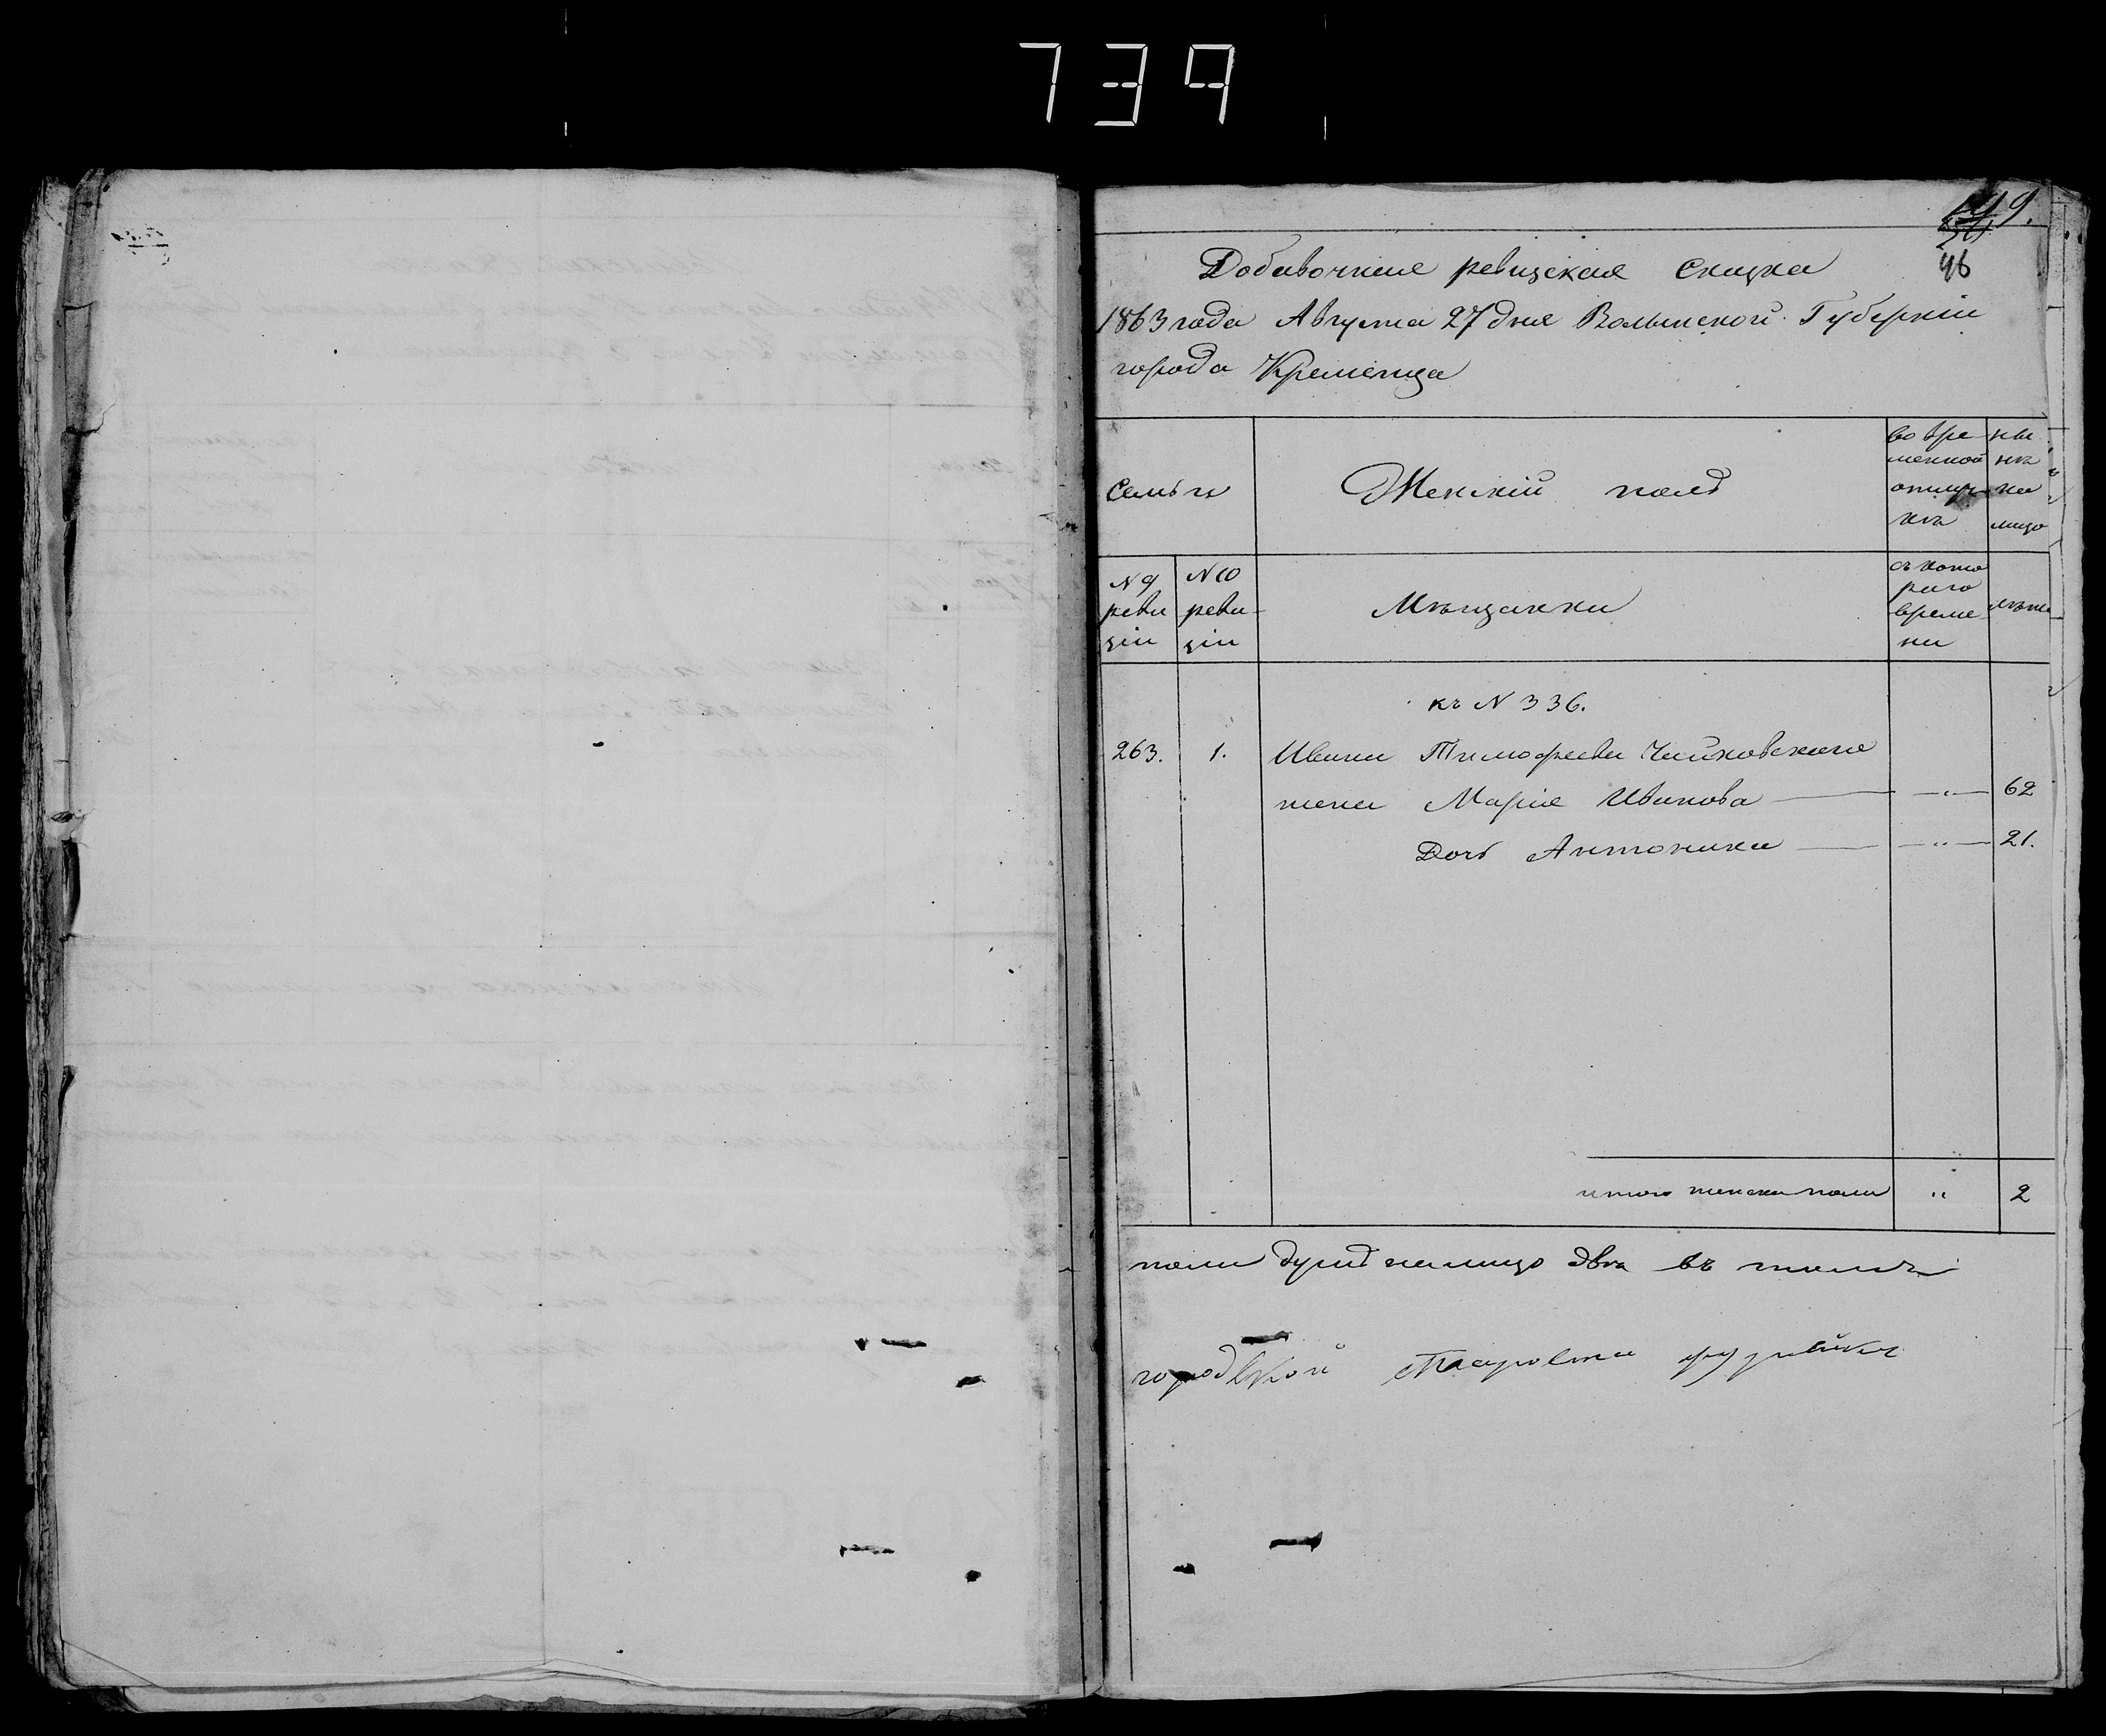 739
99.
46
Добавочная ревизская Сказка
1863 года Августа 27 дня Волынской Губерніи
города Кременца
Семьи
Женскій полъ
во вре
менной
отлуч
кѣ
ны
нѣ
на
лицо
N 9
реви
зіи
N 10
реви-
зіи
Мѣщанки
съ кото
раго
време
ни
лѣта
къ N 336.
263. 1. Ивана Тимофеева Чайковскаго
жена Марія Иванова — „ — 62
Дочь Антонина — „ — 21.
итого женска пола „ 2
пола душъ налицо двѣ въ томъ
городской Староста